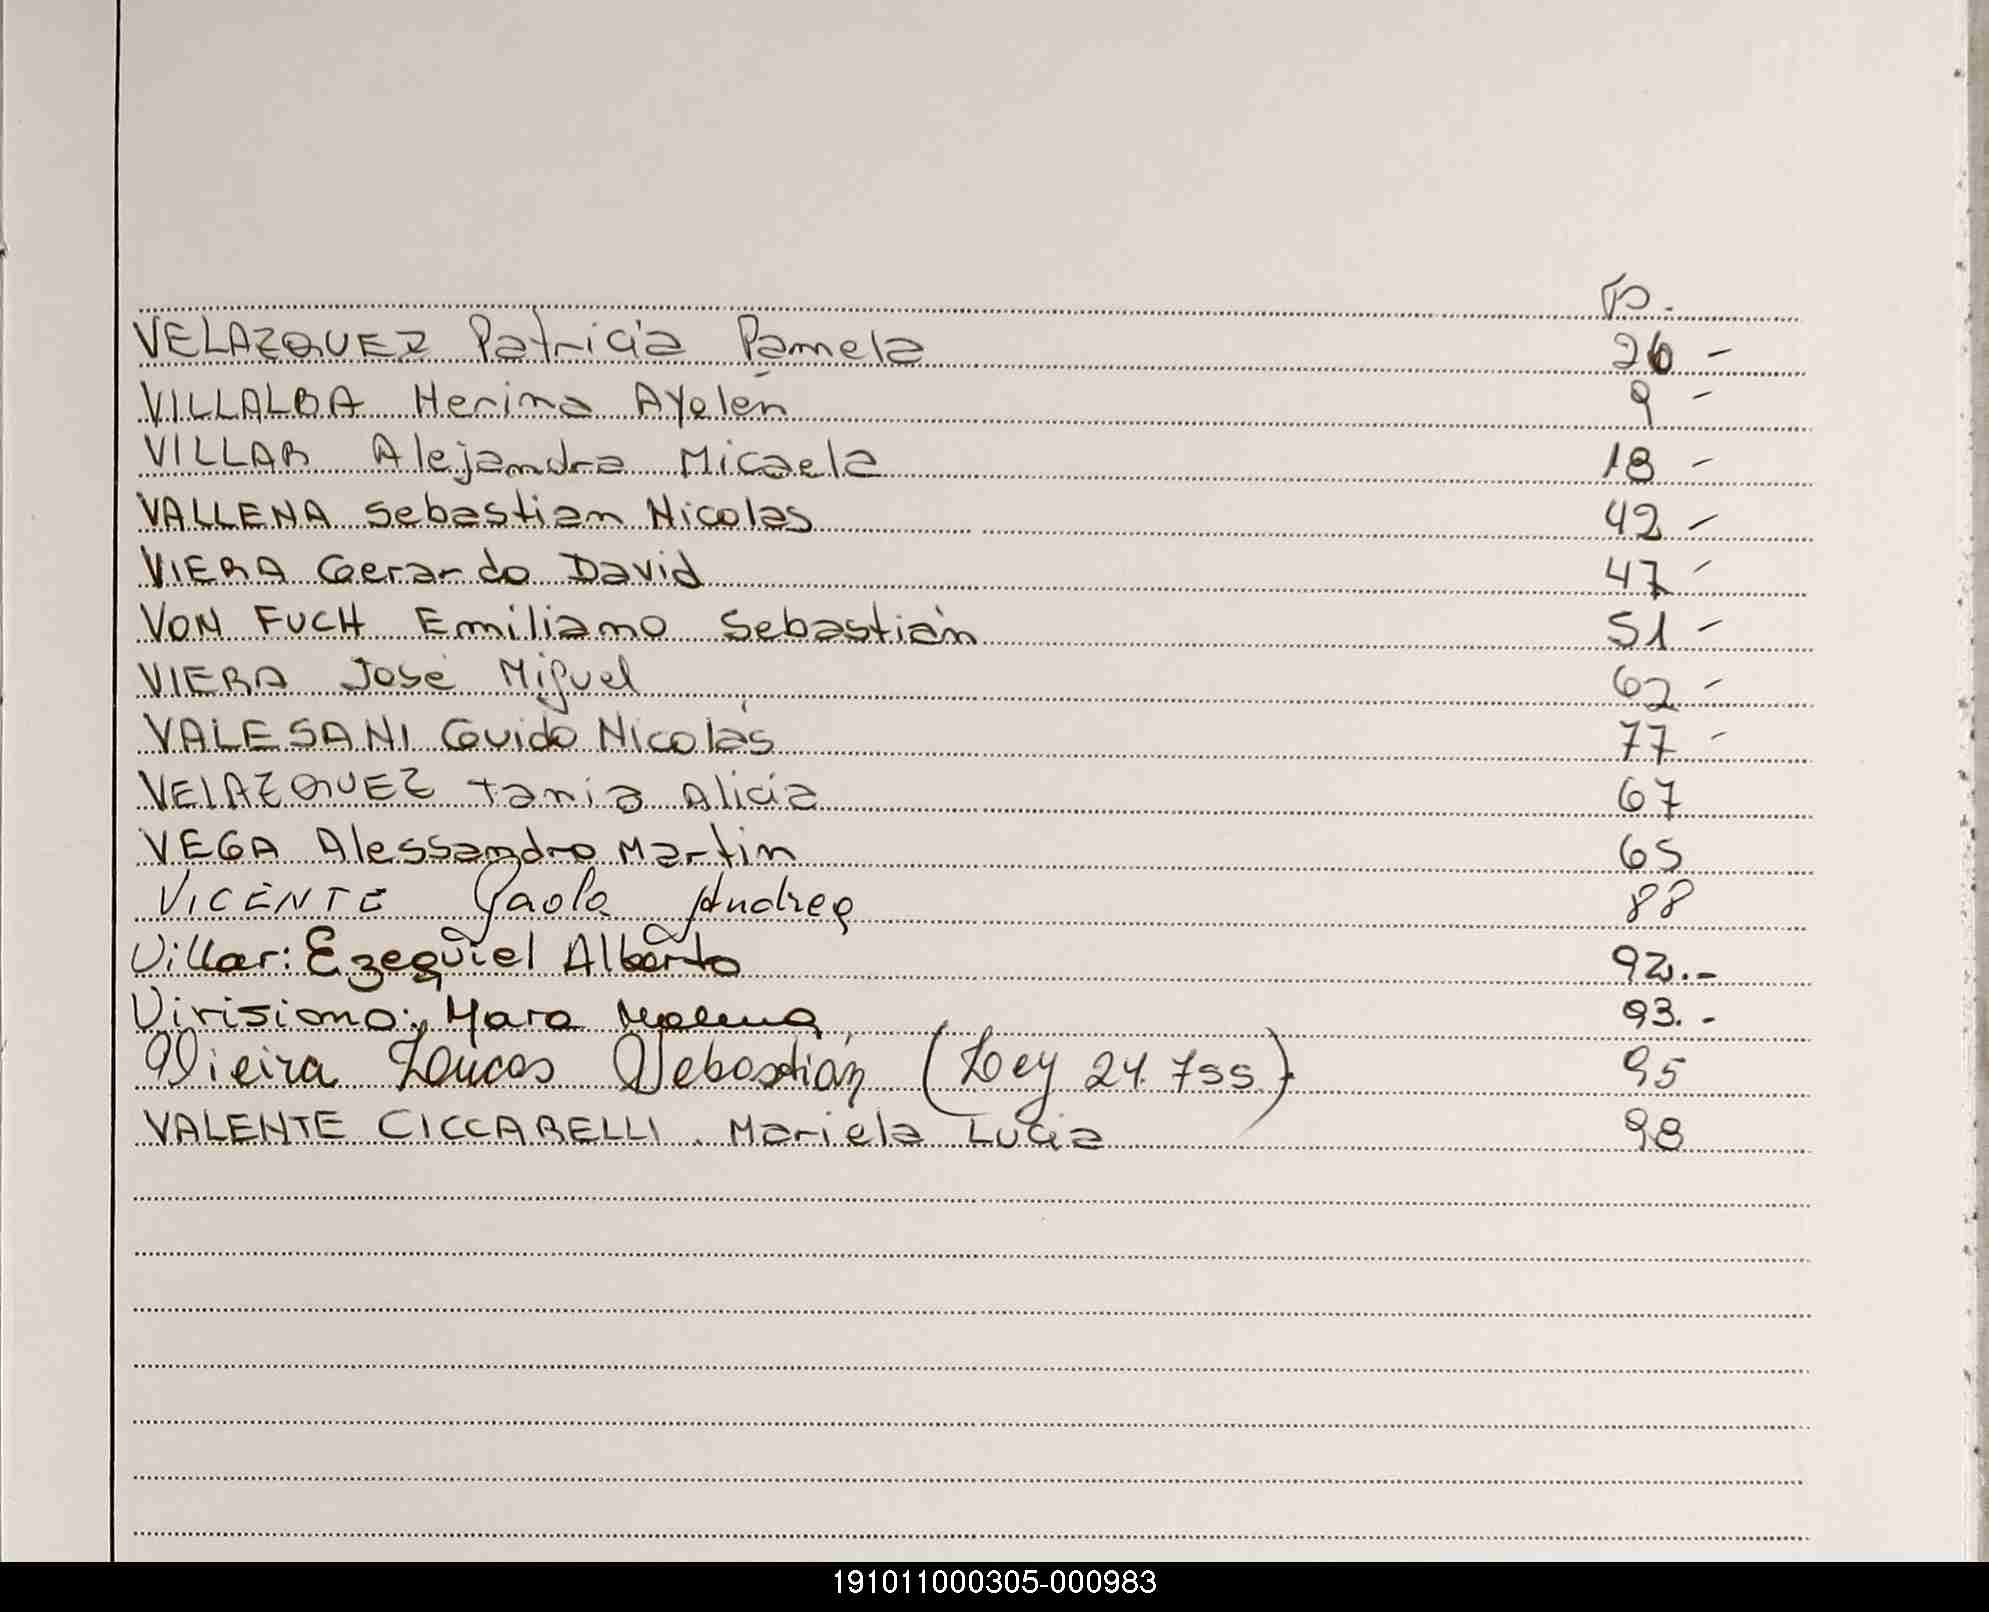 Fo.
VELAZQUEZ Patricia Pamela 26 -
VILLALBA Herina Ayelén 9 -
VILLAR Alejandra Micaela 18 -
VALLENA Sebastian Nicolas 42 -
VIERA Gerardo David 47 -
VON FUCH Emiliano Sebastián 51 -
VIERA José Miguel 62 -
VALESANI Guido Nicolás 77 -
VELAZQUEZ Tania Alicia 67
VEGA Alessandro Martin 65
VICENTE Paola Andrea 88
Villar: Ezequiel Alberto 92.-
Virisiono: Mara 93.-
Vieira Loucas Sebastián (Ley 24.755) 95
VALENTE CICCARELLI. Mariela Lucia 98
191011000305-000983